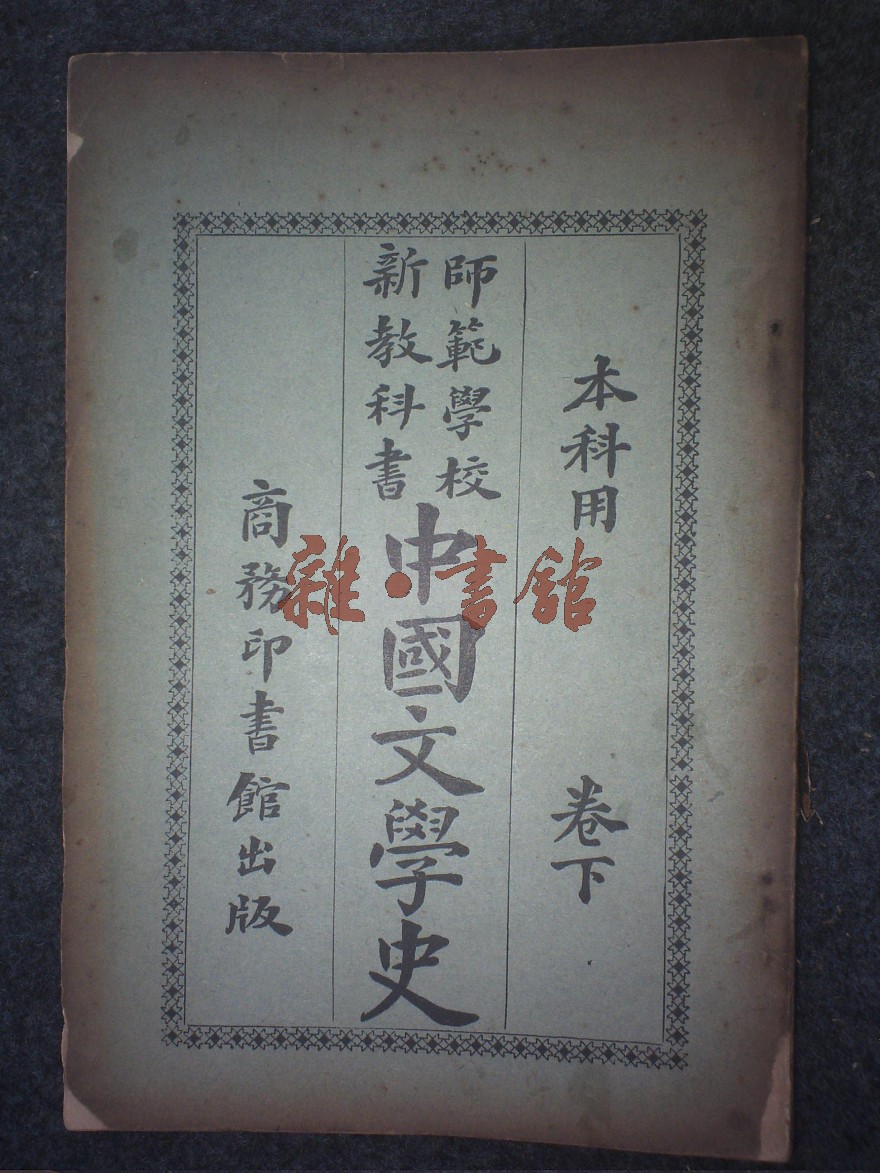 本科用 卷下
師範學校
新教科書
中國文學史
商務印書館出版
雜·書館